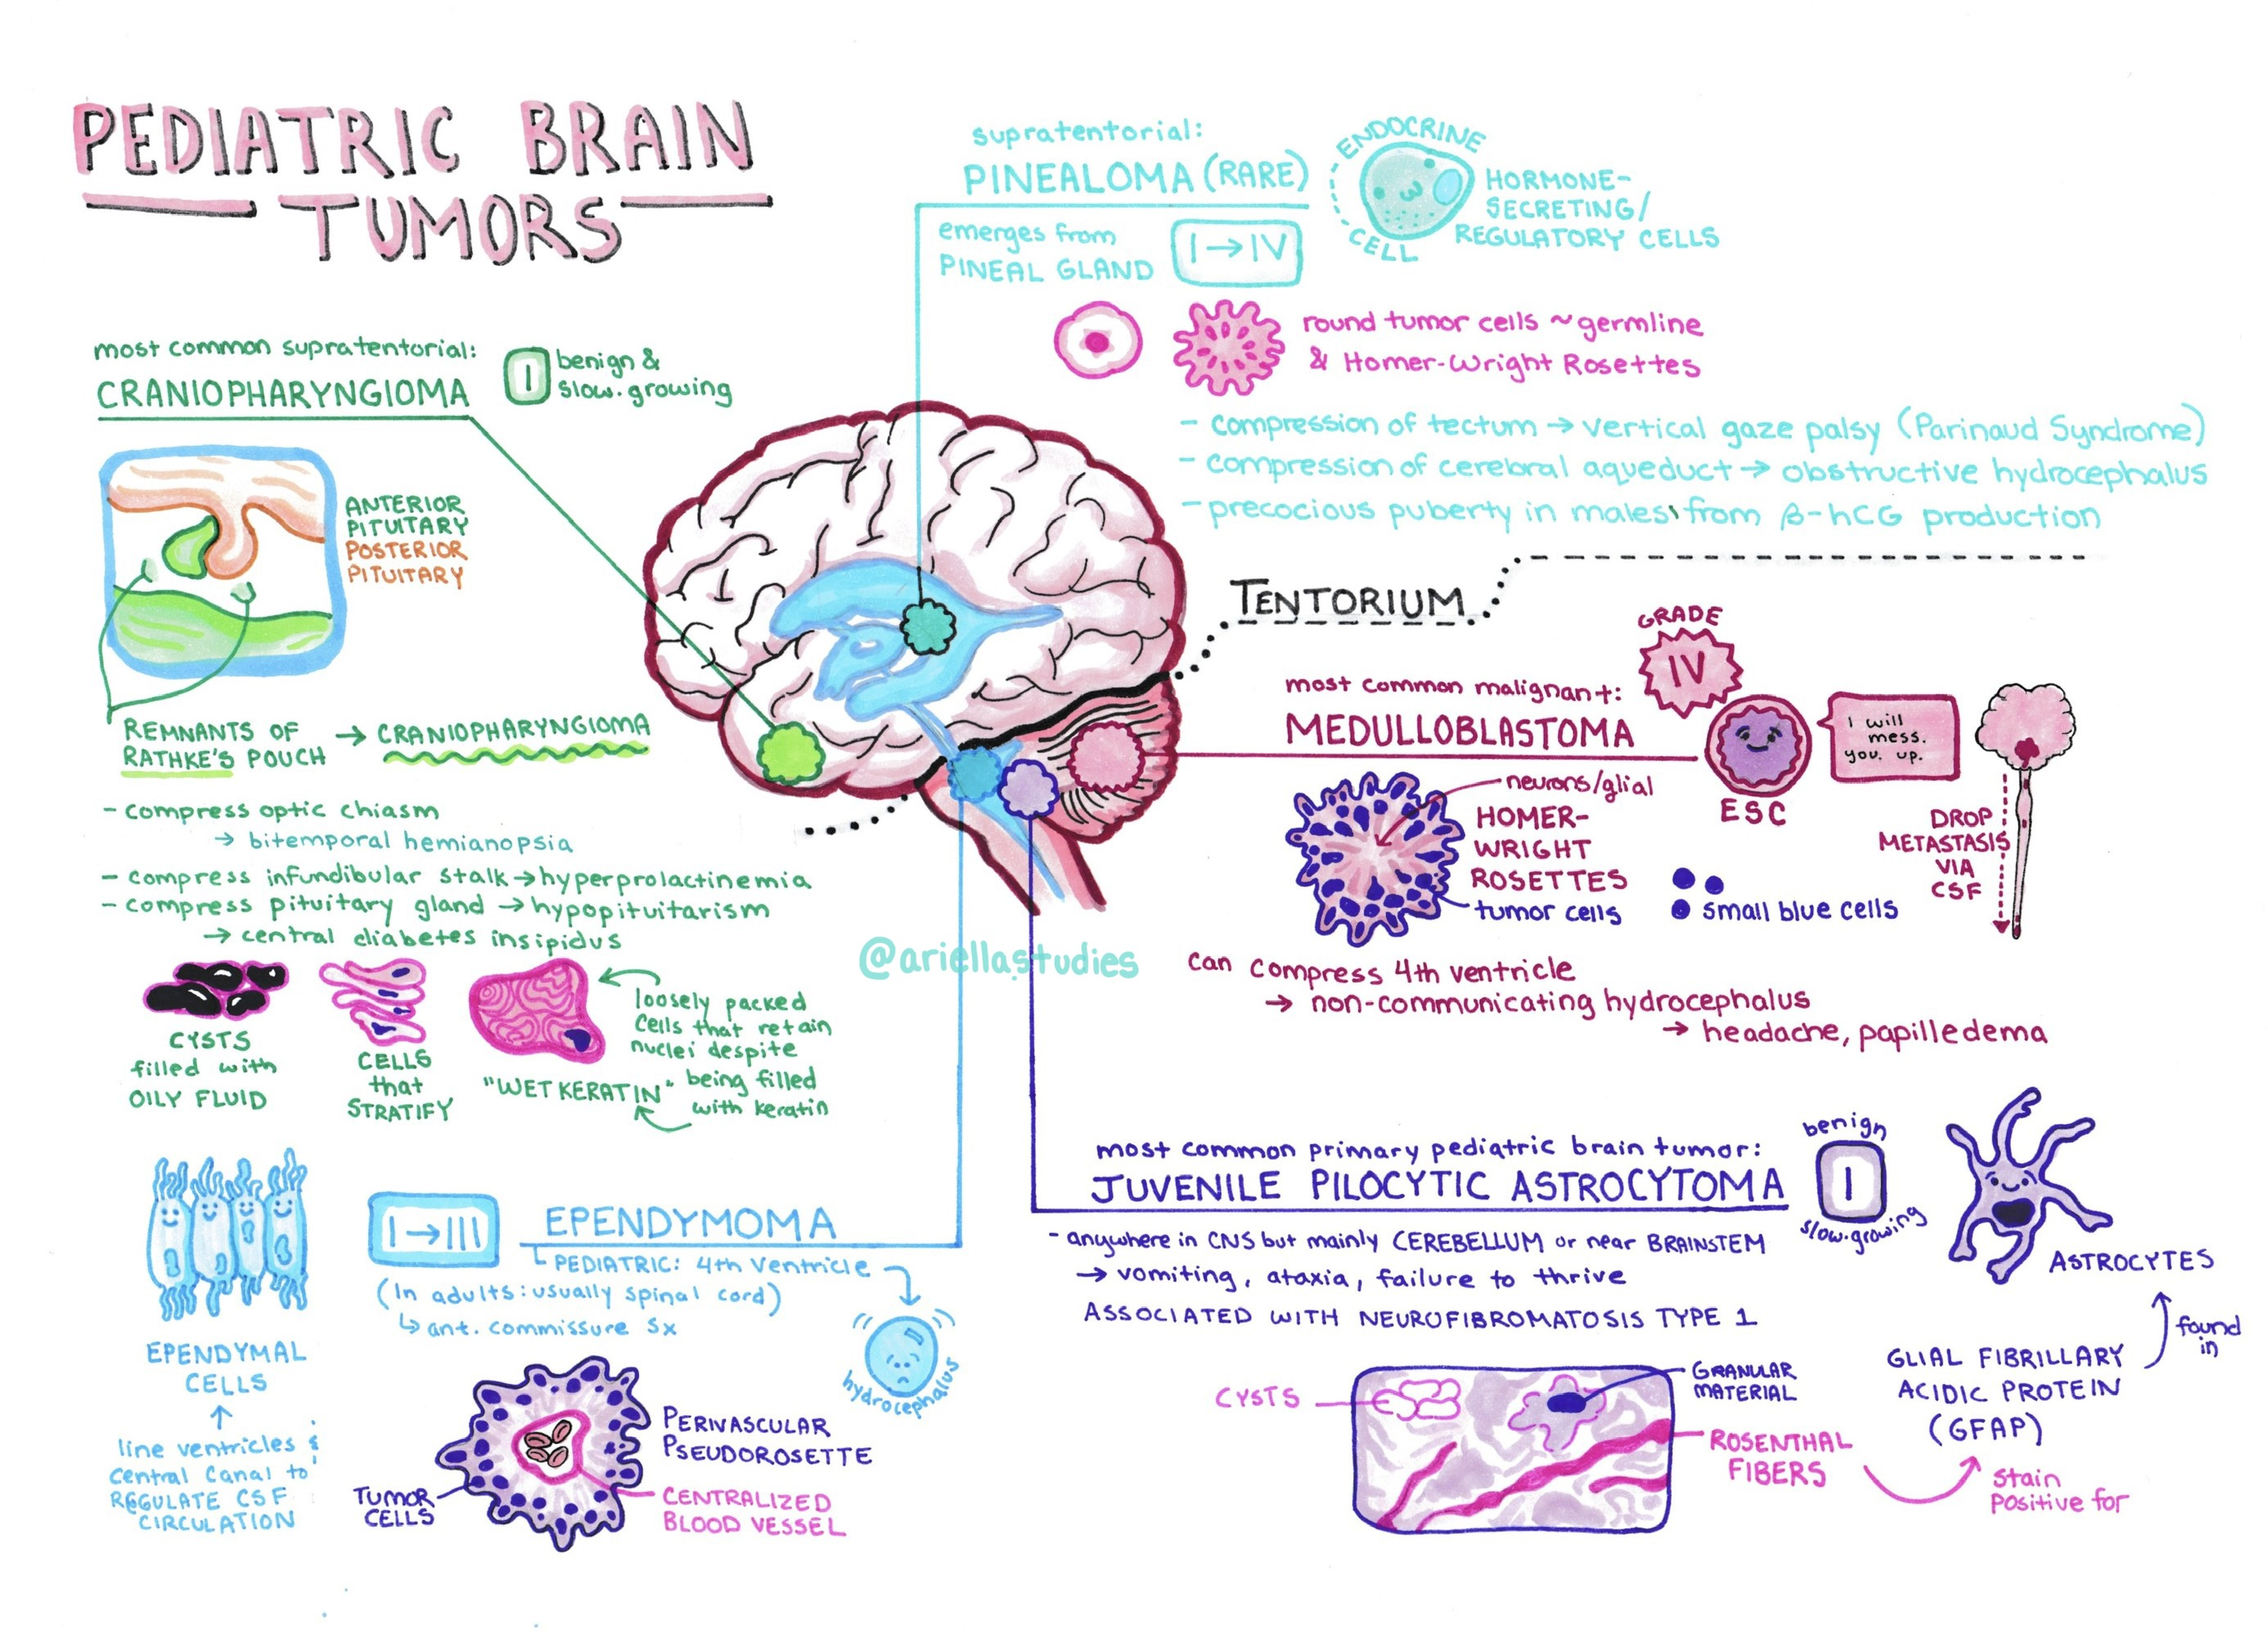 PEDIATRIC BRAIN
TUMORS
supratentorial:
PINEALOMA (RARE)
emerges from
PINEAL GLAND
I → IV
ENDOCRINE
CELL
HORMONE-
SECRETING/
REGULATORY CELLS
round tumor cells ~germline
& Homer-Wright Rosettes
- compression of tectum → vertical gaze palsy (Parinaud Syndrome)
- compression of cerebral aqueduct → obstructive hydrocephalus
- precocious puberty in males from β-hCG production
most common supratentorial:
CRANIOPHARYNGIOMA
I
benign &
slow.growing
ANTERIOR
PITUITARY
POSTERIOR
PITUITARY
REMNANTS OF
RATHKE'S POUCH
→ CRANIOPHARYNGIOMA
- compress optic chiasm
→ bitemporal hemianopsia
- compress infundibular stalk → hyperprolactinemia
- compress pituitary gland → hypopituitarism
→ central diabetes insipidus
CYSTS
filled with
OILY FLUID
CELLS
that
STRATIFY
"WET KERATIN"
loosely packed
cells that retain
nuclei despite
being filled
with keratin
TENTORIUM
most common malignant:
MEDULLOBLASTOMA
GRADE
IV
ESC
I will
mess.
you. up.
DROP
METASTASIS
VIA
CSF
neurons/glial
HOMER-
WRIGHT
ROSETTES
tumor cells
small blue cells
can compress 4th ventricle
→ non-communicating hydrocephalus
→ headache, papilledema
@ariellastudies
EPENDYMAL
CELLS
↑
line ventricles &
central canal to
REGULATE CSF
CIRCULATION
I → III
EPENDYMOMA
PEDIATRIC: 4th ventricle
(In adults: usually spinal cord)
↳ ant. commissure sx
hydrocephalus
PERIVASCULAR
PSEUDOROSETTE
TUMOR
CELLS
CENTRALIZED
BLOOD VESSEL
most common primary pediatric brain tumor:
JUVENILE PILOCYTIC ASTROCYTOMA
benign
I
slow.growing
- anywhere in CNS but mainly CEREBELLUM or near BRAINSTEM
→ vomiting, ataxia, failure to thrive
ASSOCIATED WITH NEUROFIBROMATOSIS TYPE 1
ASTROCYTES
found
in
GLIAL FIBRILLARY
ACIDIC PROTEIN
(GFAP)
stain
positive for
CYSTS
GRANULAR
MATERIAL
ROSENTHAL
FIBERS